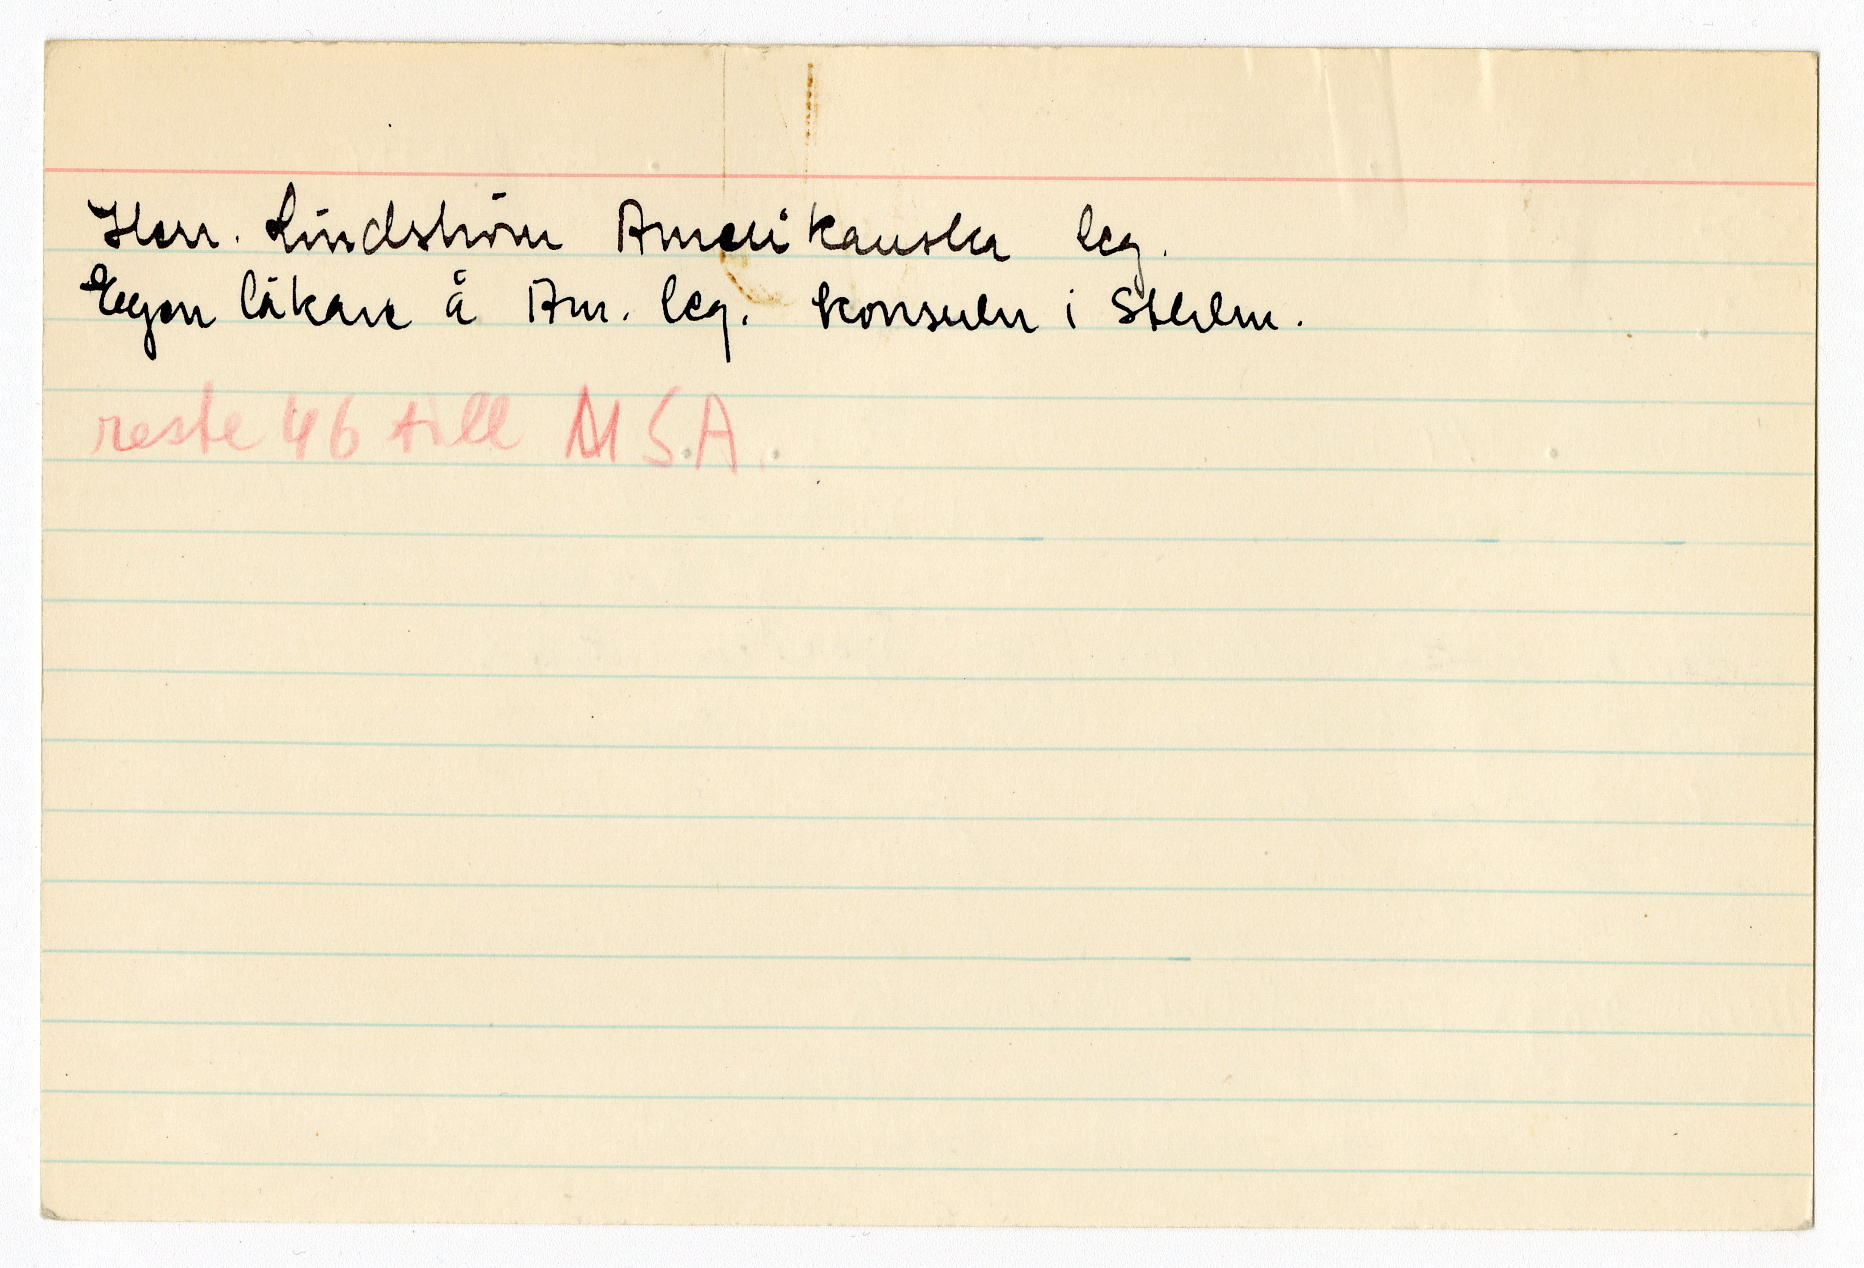 Herr. Lindström Amerikanska leg.
Egen läkare å Am. leg. konsuln i Sthlm.
reste 46 till USA.